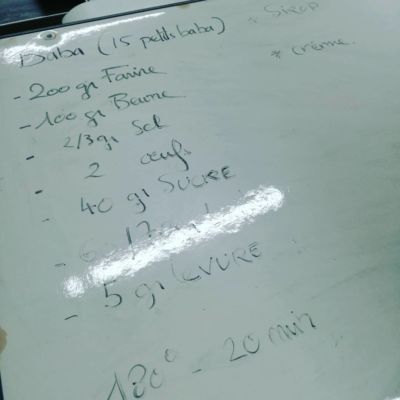 Baba (15 petits baba)
* Sirop
* crème
- 200 gr Farine
- 100 gr Beurre
- 2/3 gr Sel
- 2 œufs
- 40 gr SUCRE
-
- 5 gr LEVURE
180° - 20 min